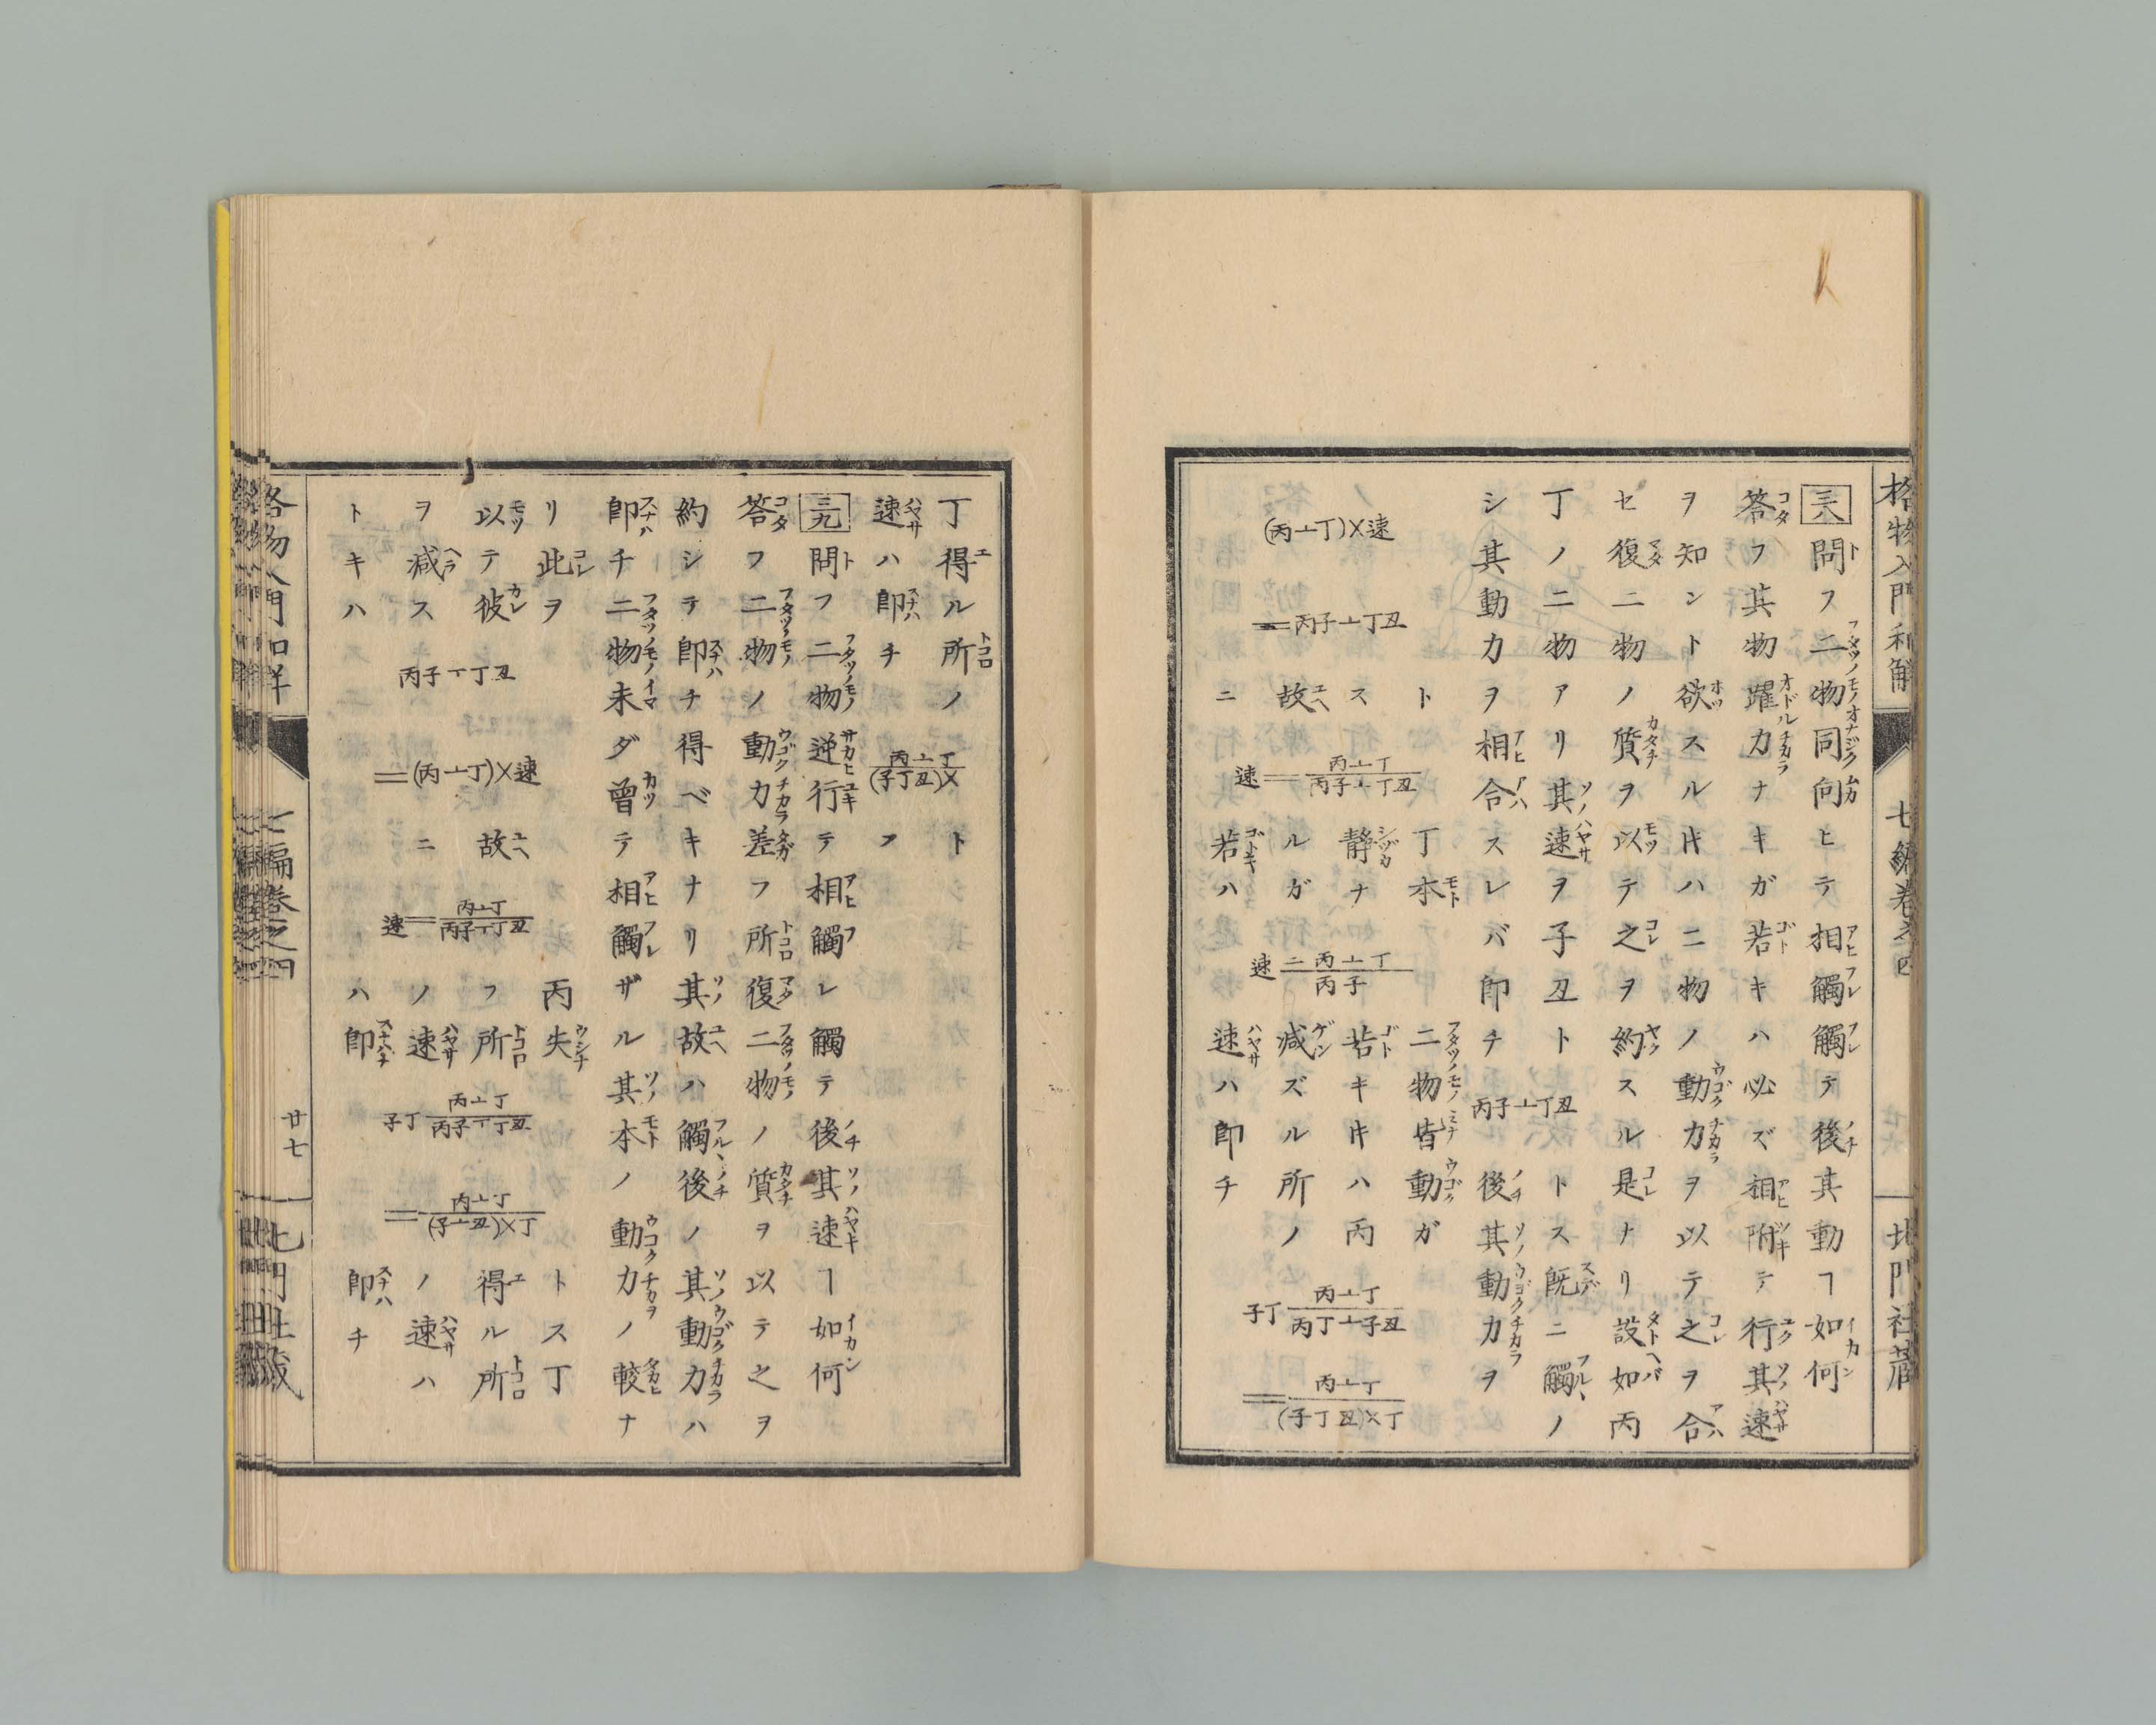 格物入門和解 七編巻之四 北門社蔵
三八 問フ二物同向ヒテ相觸觸テ後其動ヿ如何
答フ其物躍力ナキガ若キハ必ズ相附テ行其速
ヲ知ント欲スルキハ二物ノ動力ヲ以テ之ヲ合
セ復二物ノ質ヲ以テ之ヲ約スル是ナリ設如丙
丁ノ二物アリ其速ヲ子丑トス既ニ觸ノ
シ其動力ヲ相合スレバ即チ丙子⊥丁丑ト後其動力ヲ
(丙⊥丁)×速
＝丙子⊥丁丑
ト丁本二物皆動ガ
速＝丙⊥丁/丙子⊥丁丑
ス静ナ若キキハ丙
故ルガ
速＝丙⊥丁/丙子
減ズル所ノ
子丁 丙⊥丁/丙丁⊥子丑
＝丙⊥丁/(子丁丑)×丁
ニ若ハ速ハ即チ
丁得ル所ノ 丙⊥丁/(子丁丑)× ト
速ハ即チ フ
三九 問フ二物逆行テ相觸レ觸テ後其速ヿ如何
答フ二物ノ動力差フ所復二物ノ質ヲ以テ之ヲ
約シテ即チ得ベキナリ其故ハ觸後ノ其動力ハ
即チ二物未ダ曾テ相觸ザル其本ノ動力ノ較ナ
リ此ヲ 丙失トス丁
以テ彼 故フ所得ル所
丙子丅丁丑
＝(丙⊥丁)×速
速＝丙⊥丁/丙子丅丁丑
子丁 丙⊥丁/丙子丅丁丑
＝丙⊥丁/(子⊥丑)×丁
ヲ減ス ニノ速ノ速ハ
トキハ ハ即 即チ
格物入門和解 七編巻之四 廿七 北門社蔵